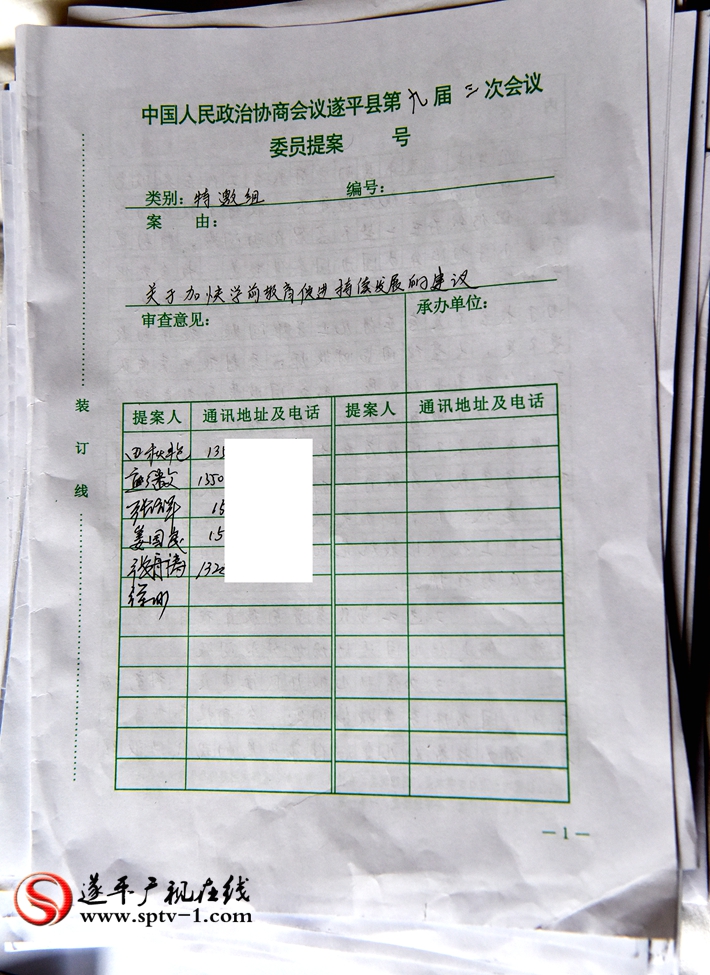 中国人民政治协商会议遂平县第九届三次会议
委员提案 号
类别：特邀组 编号：
案 由：
关于加快学前教育促进持续发展的建议
审查意见： 承办单位：
提案人 通讯地址及电话 提案人 通讯地址及电话
135
1350
15
姜国民 15
张舟涛 132
装
订
线
—1—
遂平广视在线
www.sptv-1.com